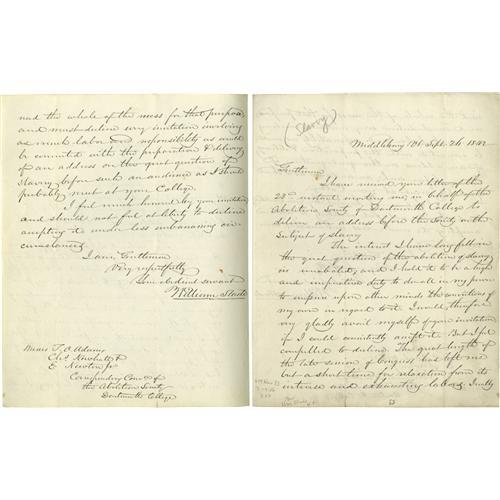 (Slavery)
Middlebury Vt. Sept. 26 1842
Gentlemen
I have received your letter of the
23d instant inviting me in behalf of the
Abolition Society of Dartmouth College to
deliver an address before the Society on the
Subject of slavery
The interest I have long felt in
the great question of the abolition of slavery
is unabated, and I hold it to be a high
and imperative duty to do all in my power
to impress upon other minds the convictions of
my own in regard to it. I would, therefore
very gladly avail myself of your invitation
if I could consistently accept it. But I feel
compelled to decline. The great length of
the late session of Congress has left me
but a short time for relaxation from its
intense and exhausting labors. I really
need the whole of the mess for that purpose
and must decline every invitation involving
as much labor and responsibility as would
be connected with the preparation & delivery
of an address on the great question of
slavery before such an audience as I should
probably meet at your College.
I feel much honored by your invitation
and should not feel at liberty to decline
accepting it under less embarrassing cir
cumstances.
I am, Gentlemen
Very respectfully
Your obedient servant
William Slade
Messrs J. O. Adams
E. Newton Jr
Corresponding Com. of
the Abolition Society
Dartmouth College